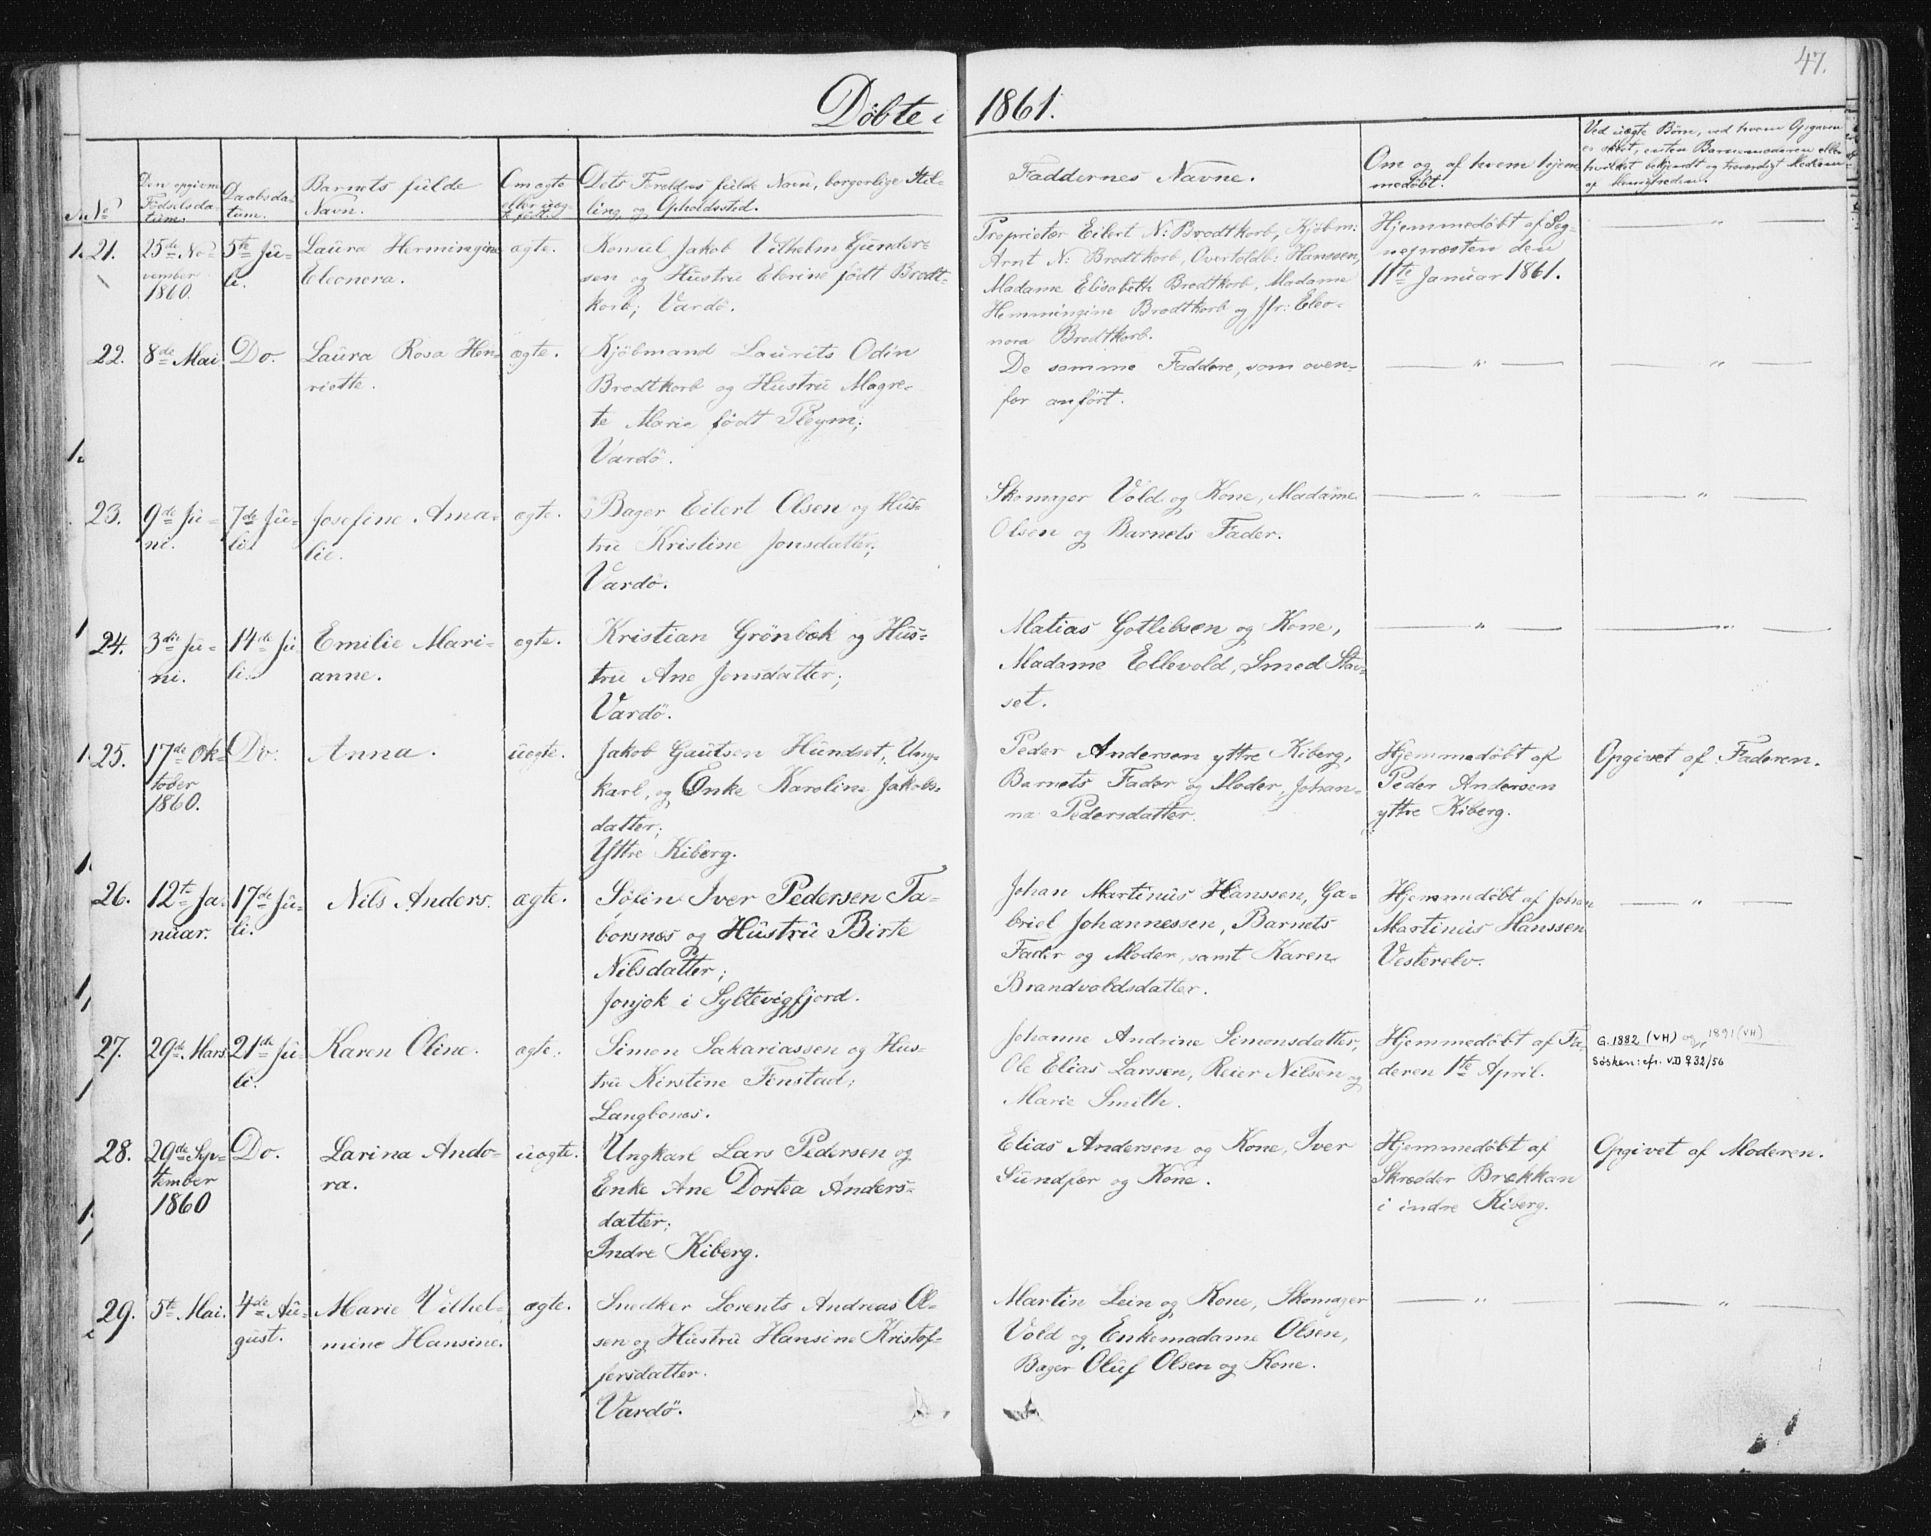 47.
Döbte i 1861.
No
Den opgivne Födselsdatum.
Daabsdatum.
Barnets fulde Navn.
Om ægte eller uægte født.
Dets Foreldres fulde Navn, borgerlige Stilling og Opholdssted.
Faddernes Navne.
Om og af hvem hjemmedöbt.
Ved uægte Börn, ved hvem Opgaven er skeet, enten Barnemoderen eller
21.
25de No-
vember
1860.
5te Ju-
li.
Laura Hermingine
Eleonora.
ægte.
Konsul Jakob Vilhelm Gunder-
sen og Hustru Elerine født Brodt-
korb; Vardö.
Proprietær Eilert N: Brodtkorb, Kjöbm:
Arnt N: Brodtkorb, Overtoldb: Hanssen,
Madame Elisabeth Brodtkorb, Madame
Hemmingine Brodtkorb og Jfr: Eleo-
nora Brodtkorb.
Hjemmedöbt af Sog-
nepræsten den
11te Januar 1861.
— " —
22.
8de Mai
Do.
Laura Rosa Hen-
riette.
ægte.
Kjöbmand Laurits Odin
Brodtkorb og Hustru Magre-
te Marie födt Pleym;
Vardö.
De samme Faddere, som oven-
for anfört.
— " —
— " —
23.
9de Ju-
ni.
7de Ju-
li.
Josefine Ama-
lie.
ægte.
Bager Eilert Olsen og Hus-
tru Kristine Jonsdatter;
Vardö.
Skomager Vold og Kone, Madame
Olsen og Barnets Fader.
— " —
— " —
24.
3die Ju-
ni.
14de Ju
li.
Emilie Mari-
anne.
ægte.
Kristian Grönbæk og Hus-
tru Ane Jonsdatter;
Vardö.
Matias Gotlibsen og Kone,
Madame Ellevold, Smed Stav-
set.
— " —
— " —
25.
17de Ok-
tober
1860.
Do.
Anna.
uægte.
Jakob Gautsen Hundset, Ung-
karl, og Enke Karoline Jakobs-
datter;
Yttre Kiberg.
Peder Andersen yttre Kiberg,
Barnets Fader og Moder, Johan-
na Pedersdatter.
Hjemmedöbt af
Peder Andersen
yttre Kiberg.
Opgivet af Faderen.
26.
12te Ja-
nuar.
17de Ju-
li.
Nils Anders.
ægte.
Söfin Iver Pedersen Ta-
borsnes og Hustru Birte
Nilsdatter;
Jonjok i Syltevigfjord.
Johan Martinus Hanssen, Ga-
briel Johannessen, Barnets
Fader og Moder, samt Karen
Brandvoldsdatter.
Hjemmedöbt af Johan
Martinus Hanssen
Vesterelv.
— " —
27.
29de Mars
21de Ju-
li.
Karen Oline.
ægte.
Simon Sakariassen og Hus-
tru Kirstine Finstad;
Langbones.
Johanne Andrine Simonsdatter,
Ole Elias Larssen, Reier Nilsen og
Marie Smith.
Hjemmedöbt af Fa-
deren 1te April.
G. 1882 (VH) og 1891 (VH)
Søsken: cfr. VD 732/56
28.
29de Sep-
tember
1860
Do.
Larina Ando-
ra.
uægte.
Ungkarl Lars Pedersen og
Enke Ane Dortea Anders-
datter;
Indre Kiberg.
Elias Andersen og Kone, Iver
Sundfær og Kone.
Hjemmedöbt af
Skredder Brækkan
i indre Kiberg.
Opgivet af Moderen.
29.
5te Mai.
4de Au-
gust.
Marie Vilhel-
mine Hansine.
ægte.
Snedker Lorents Andreas Ol-
sen og Hustru Hansine Kristof-
fersdatter.
Vardö.
Martin Lein og Kone, Skomager
Vold og Enkemadame Olsen,
Bager Oluf Olsen og Kone.
— " —
— " —